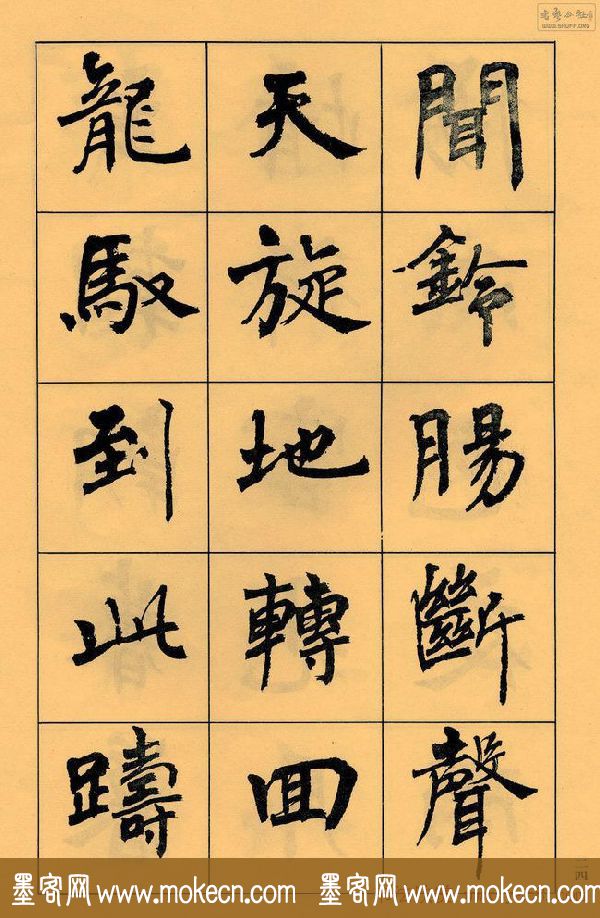 聞鈴腸斷聲
天旋地轉回
龍馭到此躊
二四
墨客网 www.mokecn.com 墨客网 www.mokecn.com 墨客网